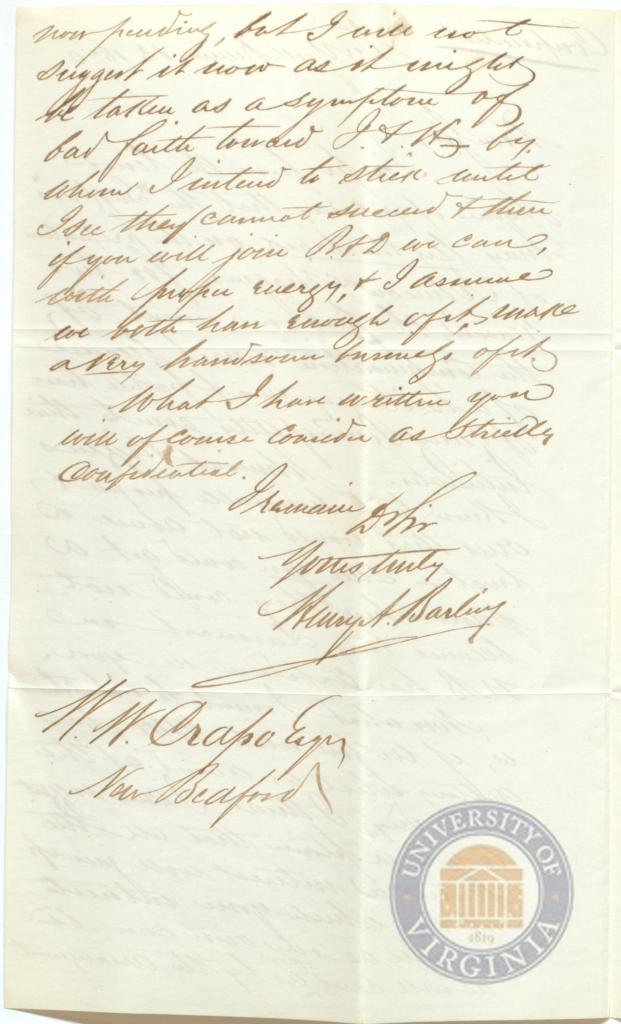 now pending, but I will not
suggest it now as it might
be taken as a symptom of
bad faith toward J. & H. by
whom I intend to stick until
I see they cannot succeed & then
if you will join B. & D we can,
with proper energy, & I assume
we both have enough of it, make
a very handsome business of it.
What I have written you
will of course consider as Strictly
Confidential.
I remain D Sir
Yours truly
Henry A. Barling
W. W. Crapo Esqr
New Bedford
UNIVERSITY OF
1819
VIRGINIA